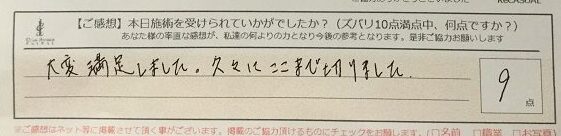 【ご感想】本日施術を受けられていかがでしたか?(ズバリ10点満点中、何点ですか?)
あなた様の率直な感想が、私達の何よりの力となり今後の参考となります。是非ご協力お願いします
大変満足しました。久々にここまで切りました。
9
点
※ご感想はネット等に掲載させて頂く事がございます。掲載のご協力頂けるものにチェックをお願いします。(□名前 □職業 □お写真)